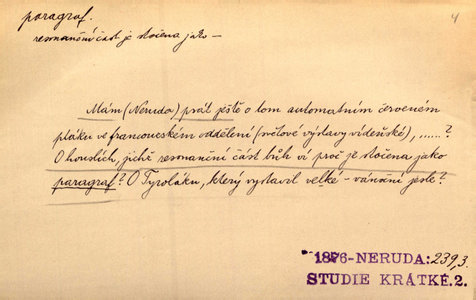 paragraf.
4
resonanční část je stočena jako —
Mám (Neruda) psát ještě o tom automatním červeném
ptáku ve francouzském oddělení (světové výstavy vídeňské), ......?
O houslích, jichž resonanční část bůh ví proč je stočena jako
paragraf? O Tyroláku, který vystavil velké — vánoční jesle?
1876-NERUDA: 239,3
STUDIE KRÁTKÉ.2.